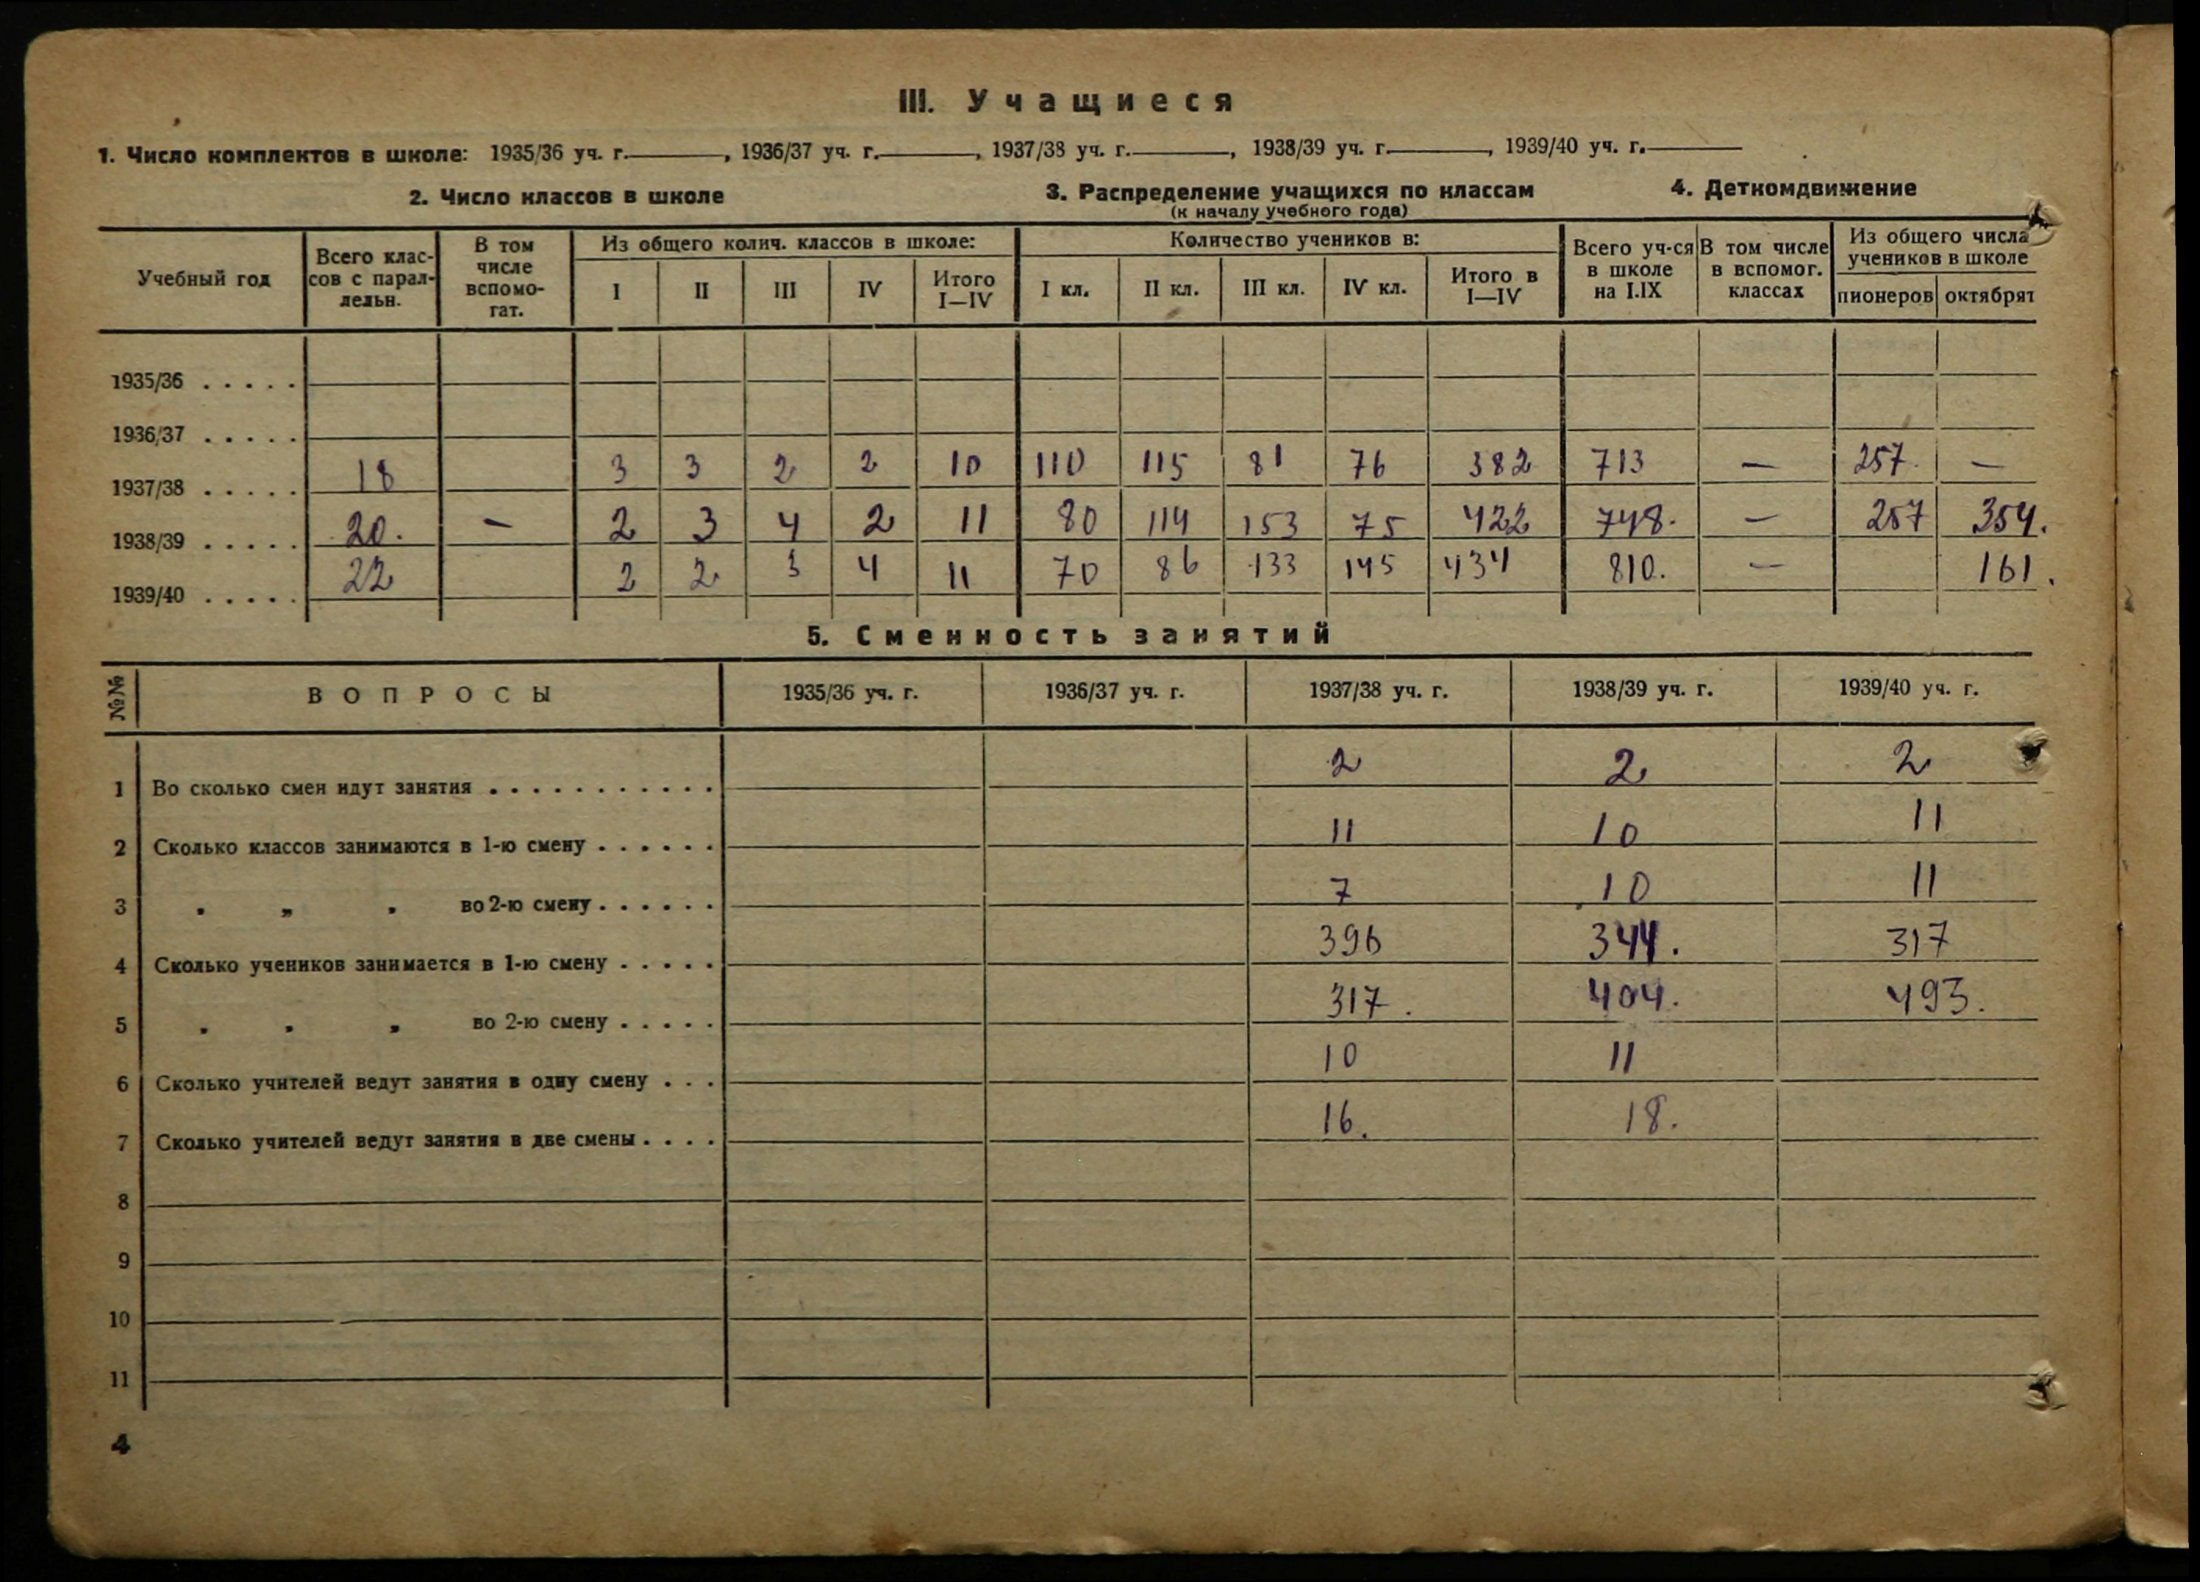 III. Учащиеся
1. Число комплектов в школе: 1935/36 уч. г. , 1936/37 уч. г. , 1937/38 уч. г. , 1938/39 уч. г. , 1939/40 уч. г.
2. Число классов в школе 3. Распределение учащихся по классам 4. Деткомдвижение
(к началу учебного года)
Учебный год Всего классов с параллельн. В том числе вспомогат. Из общего колич. классов в школе: Количество учеников в: Всего уч-ся в школе на I.IX В том числе в вспомог. классах Из общего числа учеников в школе
I II III IV Итого I—IV I кл. II кл. III кл. IV кл. Итого в I—IV пионеров октябрят
1935/36 . . . . .
1936/37 . . . . .
1937/38 . . . . . 18 3 3 2 2 10 110 115 81 76 382 713 — 257 —
1938/39 . . . . . 20. — 2 3 4 2 11 80 114 153 75 422 748. — 257 354.
1939/40 . . . . . 22 2 2 3 4 11 70 86 133 145 434 810. — 161.
5. Сменность занятий
№№ ВОПРОСЫ 1935/36 уч. г. 1936/37 уч. г. 1937/38 уч. г. 1938/39 уч. г. 1939/40 уч. г.
1 Во сколько смен идут занятия . . . . . . . . . . . 2 2 2
2 Сколько классов занимаются в 1-ю смену . . . . . . 11 10 11
3 „ „ „ во 2-ю смену . . . . . . 7 10 11
4 Сколько учеников занимается в 1-ю смену . . . . . 396 344. 317
5 „ „ „ во 2-ю смену . . . . . 317. 404. 493.
6 Сколько учителей ведут занятия в одну смену . . . 10 11
7 Сколько учителей ведут занятия в две смены . . . . 16. 18.
8
9
10
11
4